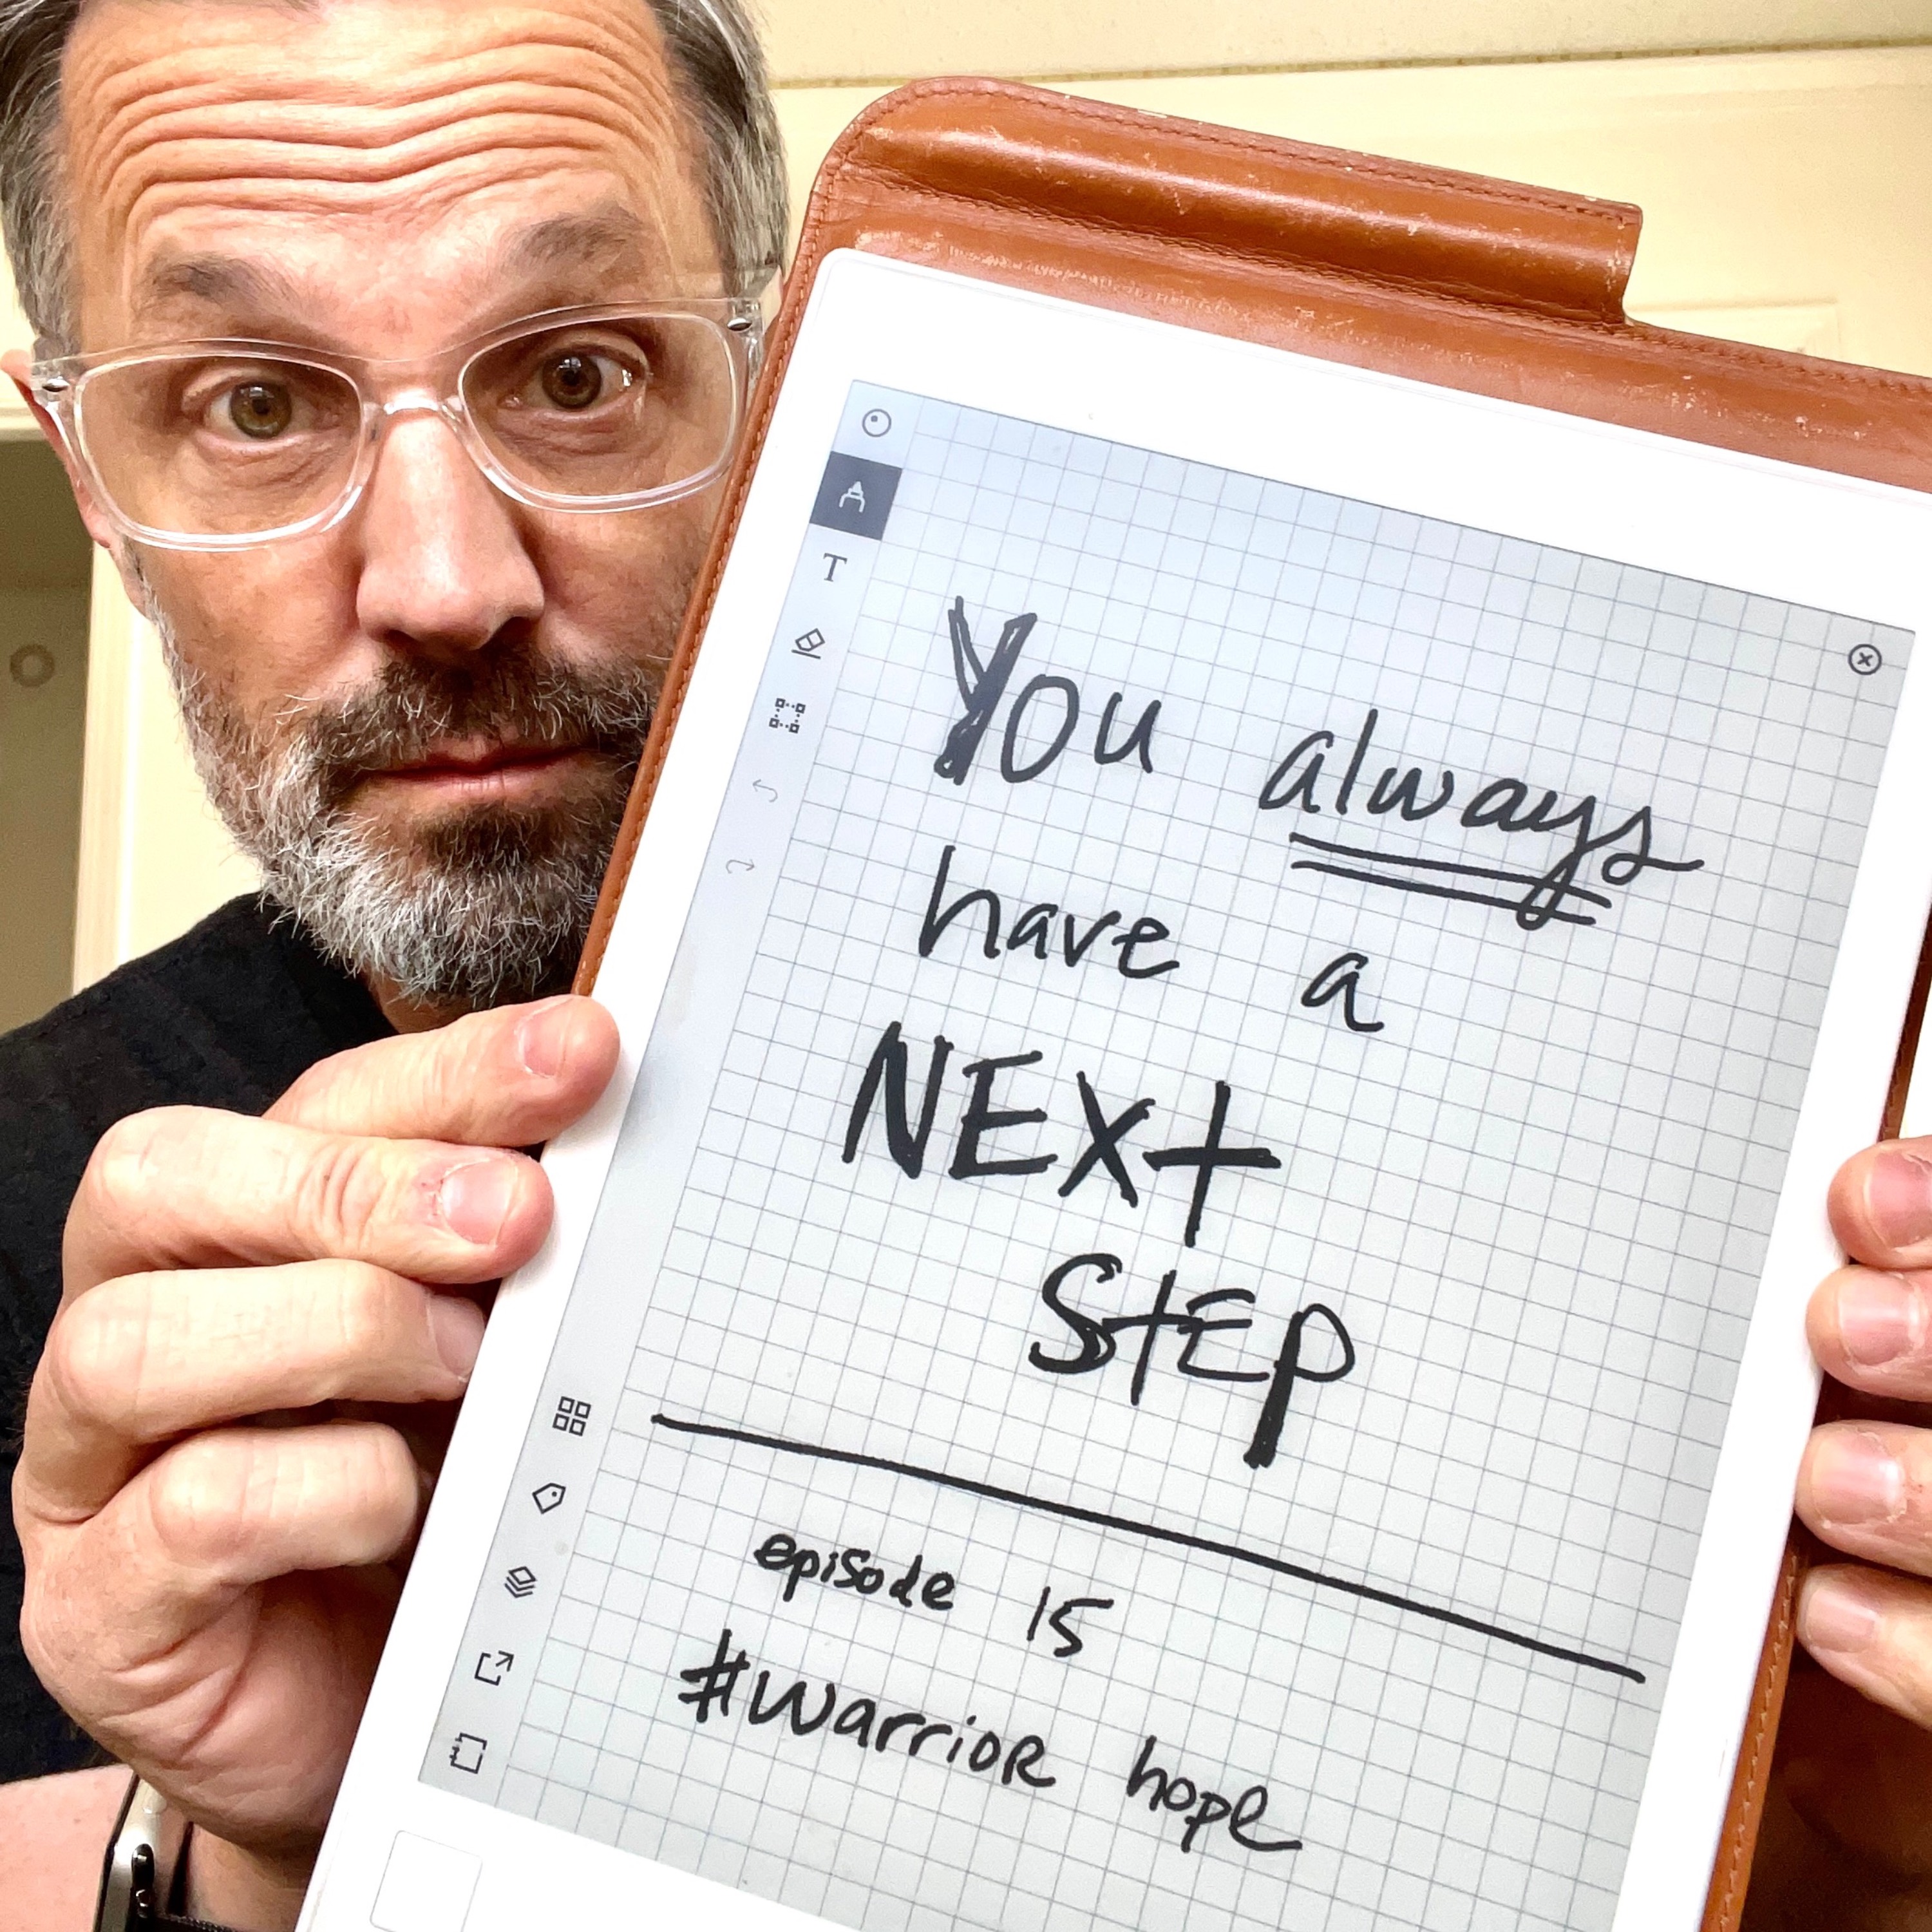 You always
have a
NEXt
StEP
episode 15
#warrioR hope